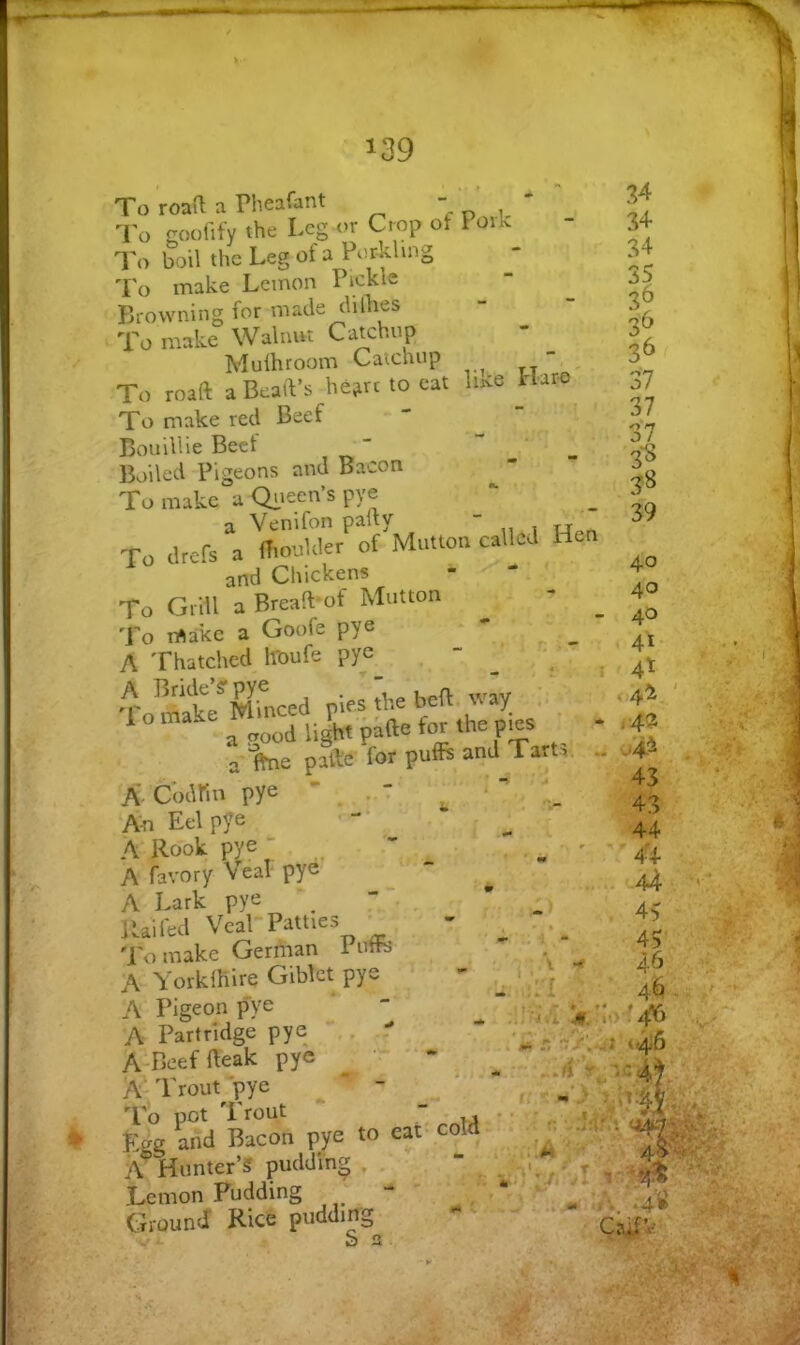 139
To roaſt a Pheaſant - - 34
To gooſify the Leg or Crop of Pork - 34
To boil the Leg of a Porkling - 34
To make Lemon Pickle - 35
Browning for made diſhes - - 36
To make Walnut Catchup - 36
Muſhroom Catchup - 36
To roaſt a Beaſt's heart to eat like Hare 37
To make red Beef - - 37
Bouillie Beef - - 37
Boiled Pigeons and Bacon - - 38
To make a Queen's pye - 38
a Veniſon paſty - - 39
To dreſs a ſhoulder of Mutton called Hen
and Chickens - - 40
To Grill a Breaſt of Mutton - 40
To make a Gooſe pye - - 40
A Thatched houſe pye - - 41
A Bride's pye - - 41
To make Minced pies the beſt way 42
a good light paſte for the pies - 42
a fine paſte for puffs and Tarts - 42
A Codlin pye - - - 43
An Eel pye - - - 43
A Rook pye - - - 44
A ſavory Veal pye - - 44
A Lark pye - - 44
Raiſed Veal Patties - - 45
To make German Puffs - - 45
A Yorkſhire Giblet pye - - 46
A Pigeon pye - - 46
A Partridge pye - - 46
A Beef ſteak pye - - 46
A Trout pye - - 47
To pot Trout - - 47
Egg and Bacon pye to eat cold 47
A Hunter's pudding - - 48
Lemon Pudding - - 48
Ground Rice pudding - - 48
S 2 Calf's